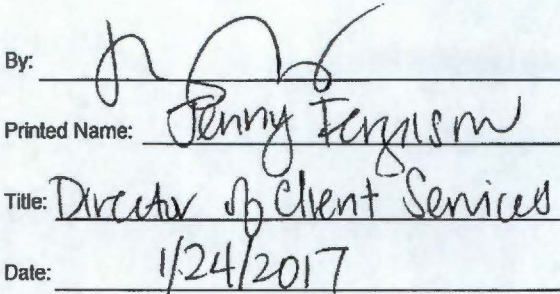 By:
Printed Name: Jenny Ferguson
Title: Director of Client Services
Date: 1/24/2017